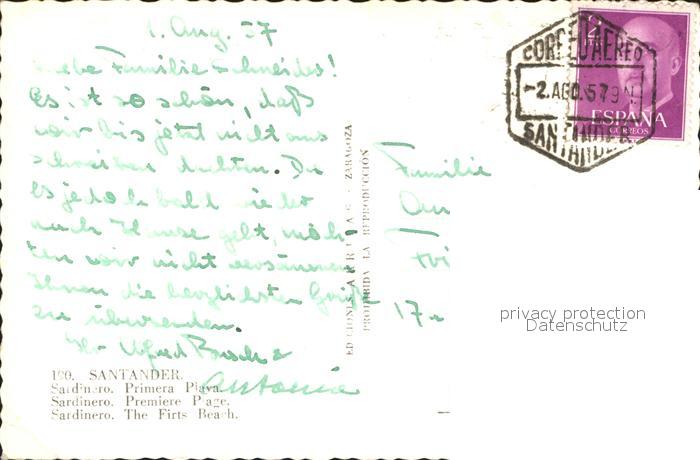 1. Aug. 57
Liebe Familie Schneider!
Es ist so schön, daß
wir bis jetzt nicht ans
schreiben dachten. Da
es jedoch bald wieder
nach Hause geht, möch-
ten wir nicht versäumen
Ihnen die herzlichsten Grüße
zu übersenden.
Ihr Alfred &
Antonia
190. SANTANDER.
Sardinero. Primera Playa.
Sardinero. Premiere Plage.
Sardinero. The Firts Beach.
EDICIONES ARRIBAS - ZARAGOZA
PROHIBIDA LA REPRODUCCION
CORREO AEREO
-2.AGO.57 9N
SANTANDER
2
ESPAÑA
CORREOS
Familie
17a
privacy protection
Datenschutz